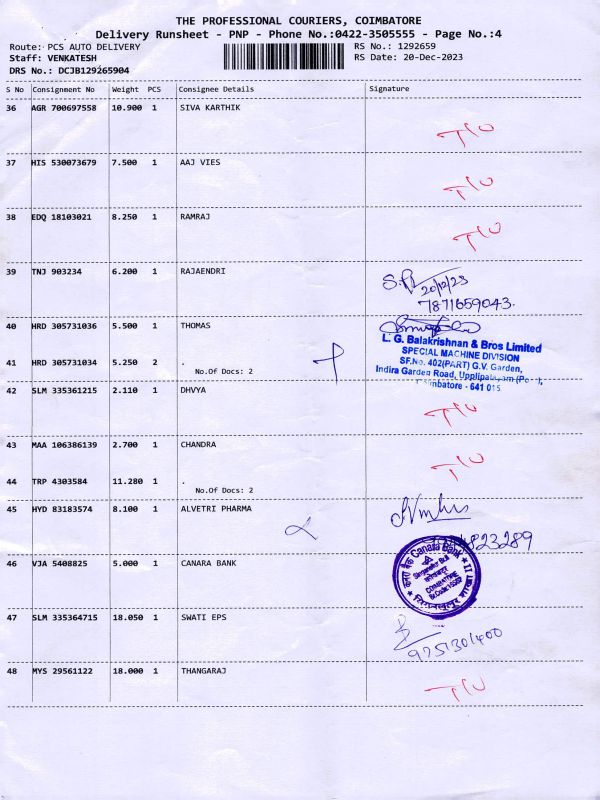 THE PROFESSIONAL COURIERS, COIMBATORE
Delivery Runsheet - PNP - Phone No.:0422-3505555 - Page No.:4
Route: PCS AUTO DELIVERY RS No.: 1292659
Staff: VENKATESH RS Date: 20-Dec-2023
DRS No.: DCJB129265904
S No Consignment No Weight PCS Consignee Details Signature
36 AGR 700697558 10.900 1 SIVA KARTHIK
T/O
37 HIS 530073679 7.500 1 AAJ VIES
T/O
38 EDQ 18103021 8.250 1 RAMRAJ
T/O
39 TNJ 903234 6.200 1 RAJAENDRI
20/12/23
7871659043.
40 HRD 305731036 5.500 1 THOMAS
L. G. Balakrishnan & Bros Limited
SPECIAL MACHINE DIVISION
41 HRD 305731034 5.250 2 .
SF.No. 402(PART) G.V. Garden,
No.Of Docs: 2
Indira Garden Road, Upplipalayam
Coimbatore - 641 015
42 SLM 335361215 2.110 1 DHVYA
T/O
43 MAA 106386139 2.700 1 CHANDRA
T/O
44 TRP 4303584 11.280 1 .
No.Of Docs: 2
45 HYD 83183574 8.100 1 ALVETRI PHARMA
823289
46 VJA 5408825 5.000 1 CANARA BANK
Canara Bank
COIMBATORE
47 SLM 335364715 18.050 1 SWATI EPS
9251301400
48 MYS 29561122 18.000 1 THANGARAJ
T/O